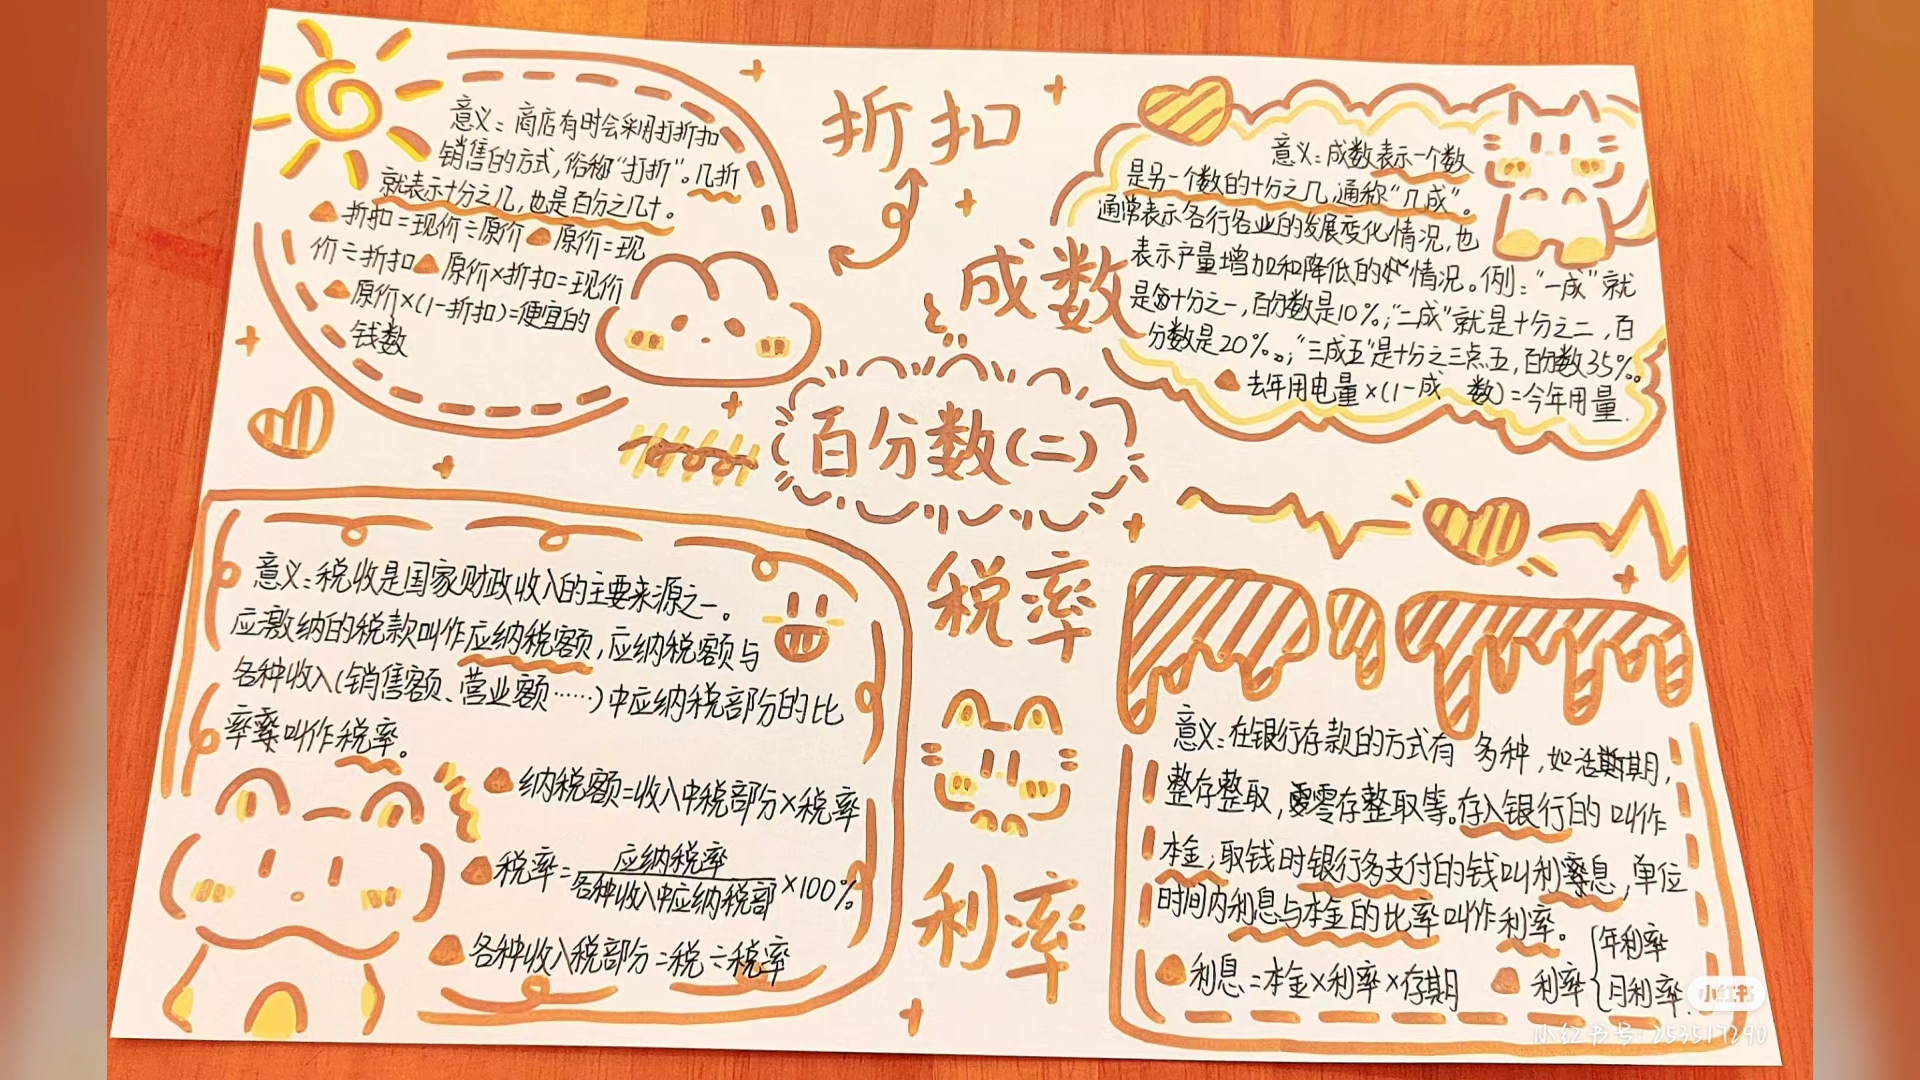 折扣
意义：商店有时会采用打折扣
销售的方式，俗称“打折”。几折
就表示十分之几，也是百分之几十。
折扣=现价÷原价 原价=现
价÷折扣 原价×折扣=现价
原价×(1-折扣)=便宜的
钱数
成数
意义：成数表示一个数
是另一个数的十分之几，通称“几成”。
通常表示各行各业的发展变化情况，也
表示产量增加和降低的情况。例：“一成”就
是十分之一，百分数是10%；“二成”就是十分之二，百
分数是20%。；“三成五”是十分之三点五，百分数35%。
去年用电量×(1-成 数)=今年用量.
百分数(二)
税率
意义：税收是国家财政收入的主要来源之一。
应激纳的税款叫作应纳税额，应纳税额与
各种收入(销售额、营业额……)中应纳税部分的比
率叫作税率。
纳税额=收入中税部分×税率
税率=应纳税率/各种收入中应纳税部×100%
各种收入税部分=税÷税率
利率
意义：在银行存款的方式有 多种，如活期，
整存整取，零存整取等。存入银行的 叫作
本金，取钱时银行多支付的钱叫利息，单位
时间内利息与本金的比率叫作利率。
利息=本金×利率×存期 利率{年利率
月利率.
小红书
小红书号：253517290